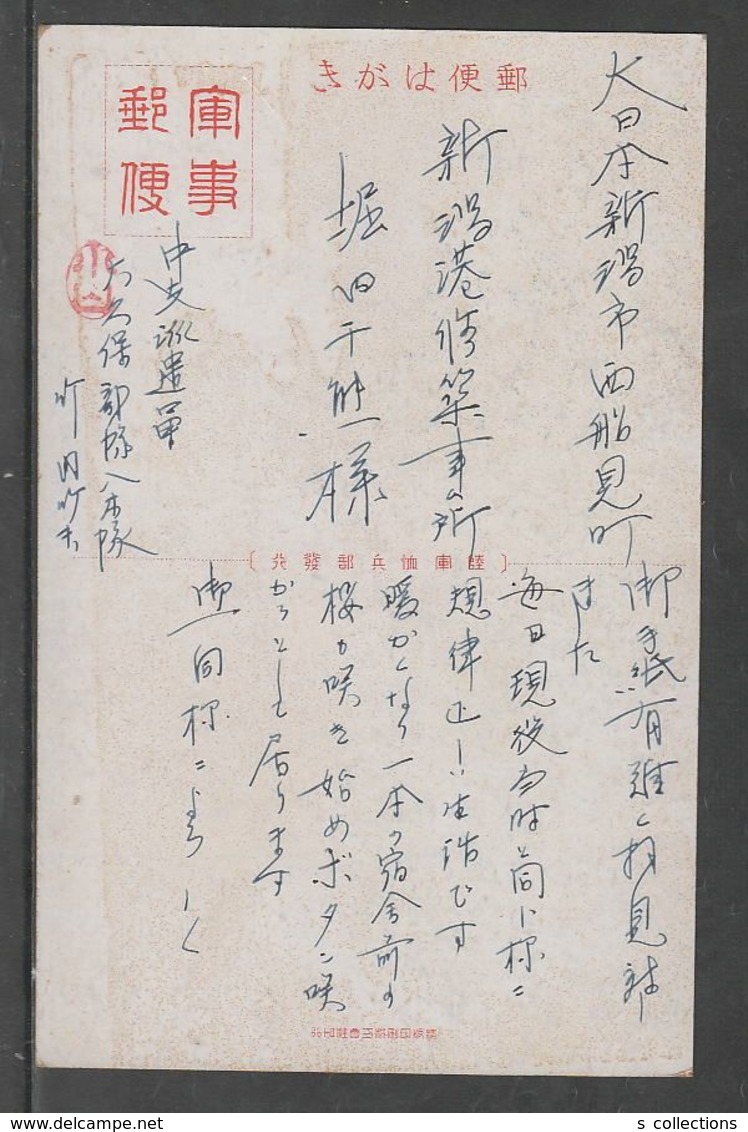 郵便はがき
軍事
郵便
大日本新潟市西船見町
新潟港修築事ム所
堀田千熊様
中支派遣軍
大久保部隊八木隊
小山
陸軍恤兵部發行
御手紙有難く拝見致
きた
毎日現役当時と同じ様に
規律正しい生活です
暖かくなり一本の宿舎前の
桜も咲き始めボタンも咲
かうとして居ります
御一同様によろしく
s collections